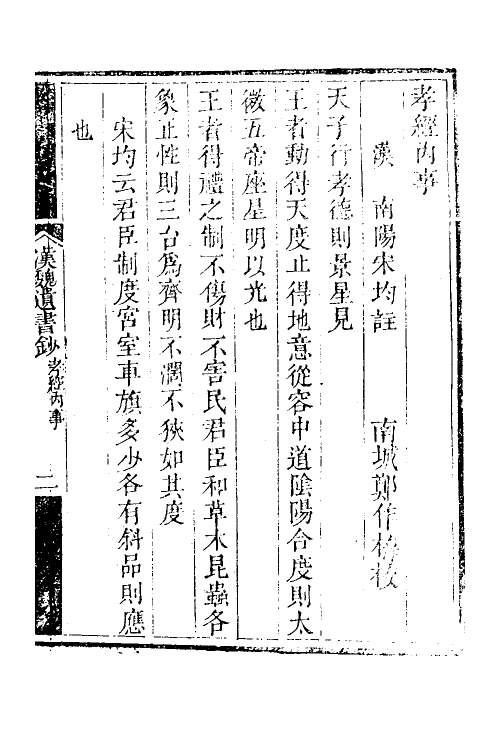 孝經內事
漢　南陽宋均註　南城鄭作校
天子行孝德則景星見
王者動得天度止得地意從容中道陰陽合度則太
微五帝座星明以光也
王者得禮之制不傷財不害民君臣和草木昆蟲各
象正性則三台爲齊明不濶不狹如其度
宋均云君臣制度宮室車旗多少各有斜品則應
也
漢魏遺書鈔　孝經內事　二